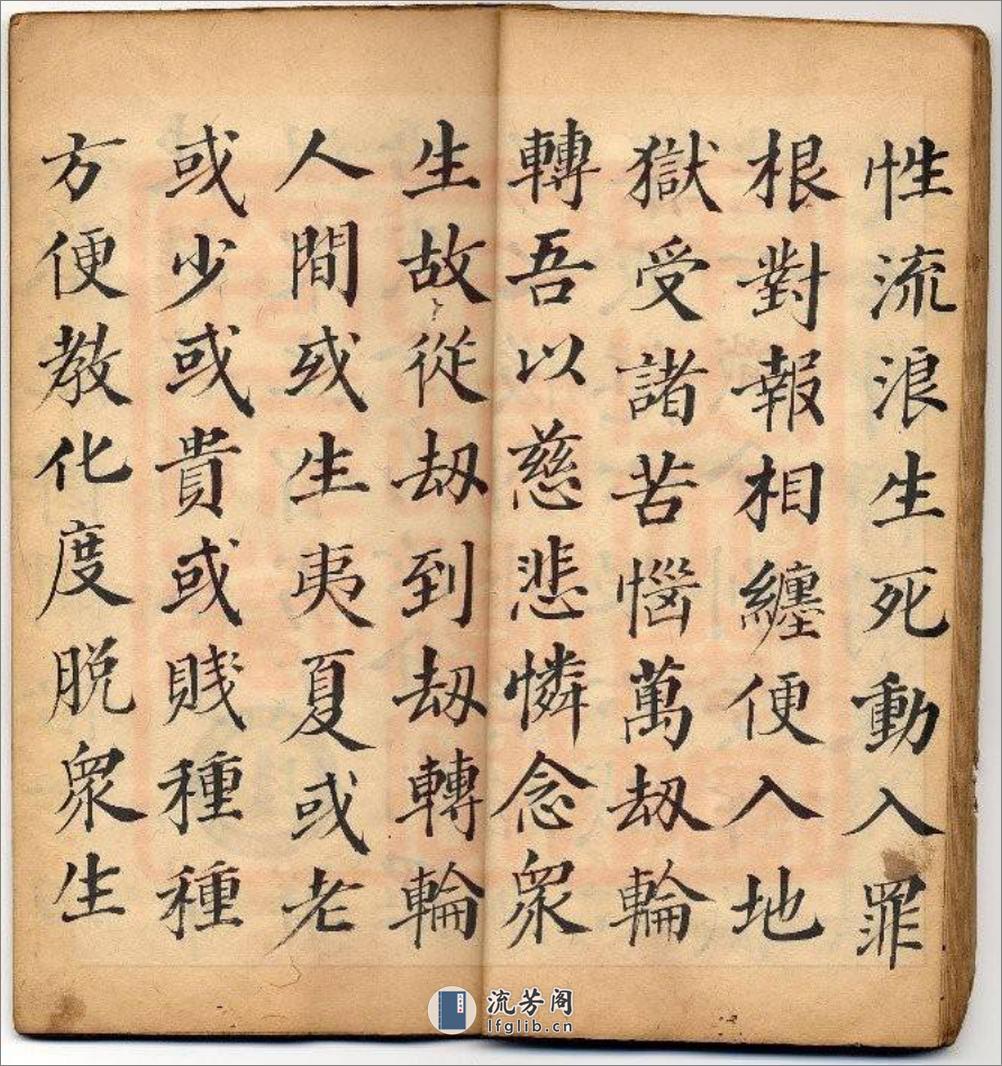 性流浪生死動入罪
根對報相纏便入地
獄受諸苦惱萬刼輪
轉吾以慈悲憐念衆
生故從刼到刼轉輪
人間或生夷夏或老
或少或貴或賤種種
方便教化度脱衆生
流芳阁
lfglib.cn